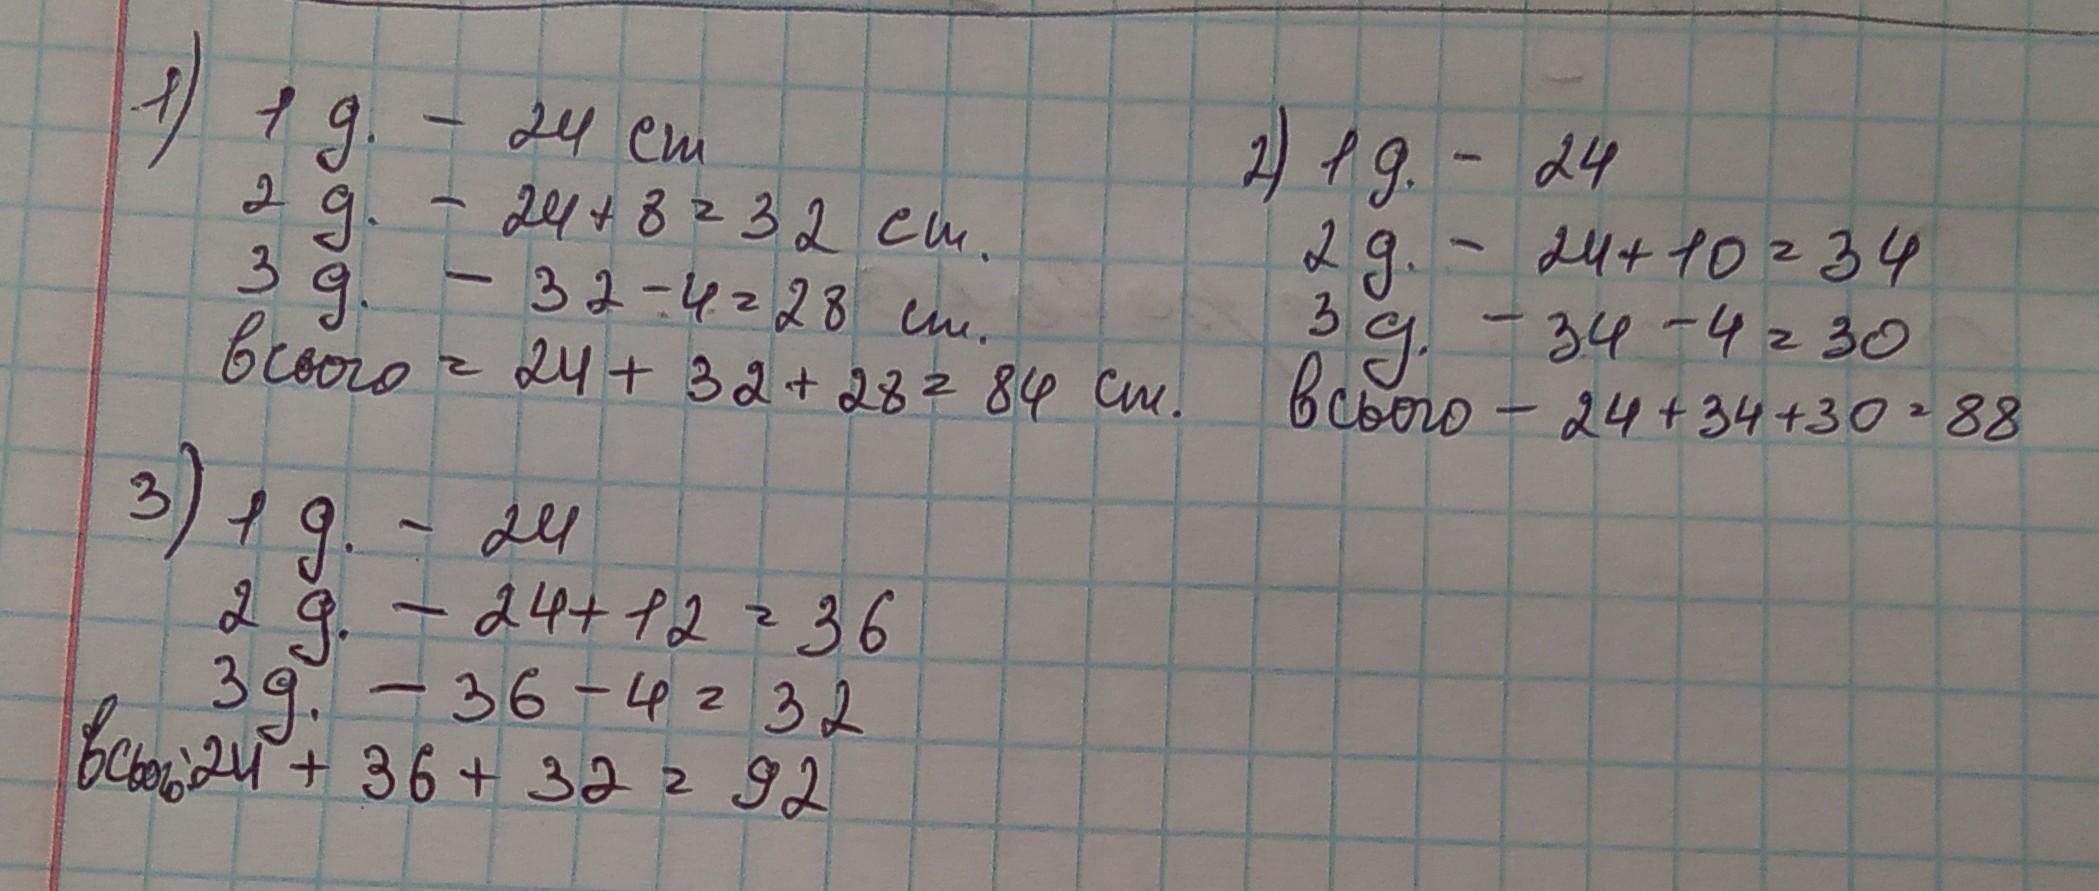 1) 1 д. - 24 см
2 д. - 24+8=32 см.
3 д. - 32-4=28 см.
всього = 24+32+28=84 см.
2) 1 д. - 24
2 д. - 24+10=34
3 д. - 34-4=30
всього - 24+34+30=88
3) 1 д. - 24
2 д. - 24+12=36
3 д. - 36-4=32
всього: 24+36+32=92